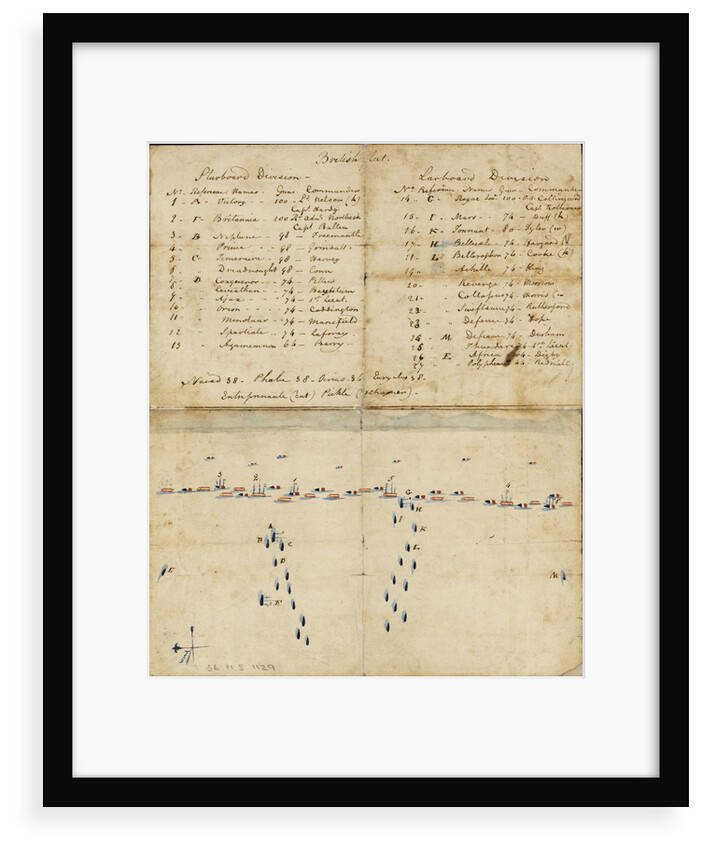 British Fleet.
Starboard Division -
No. Reference Names - Guns - Commanders
1 - A - Victory - - 100 - Ld. Nelson (k)
Capt. Hardy
2 - F - Britannia - 100 Rr. Adml. Northesk
Capt. Bullen
3 - B Neptune - 98 - Freemantle
4 - " Prince - - 98 - Grindall -
5 - C - Temeraire - 98 - Harvey
6 - " - Dreadnought 98 - Conn
D Conqueror - - 74 - Pellew
Leviathan - - 74 -
9 - " - Ajax - - 74 - 1st Lieut.
10 " - Orion - - 74 - Coddington
11 - Minotaur - 74 - Mansfield
12 " Spartiate - 74 - Laforey
13 " Agamemnon 64 - Berry -
Larboard Division
No. Reference Names Guns - Commanders
14 - G - Royal Sov. 100 - Ad. Collingwood
Capt. Rotheram
15 - I - Mars - - 74 - Duff (k)
16 - K - Tonnant - 80 - Tyler (w)
17 - H - Belleisle - 74 - Hargood
18 - L - Bellerophon 74 - Cooke (k)
19 - " Achille 74 - King
20 - " Revenge 74 - Moorsom
21 - " 74 - Morris (w
22 - " Swiftsure 74 - Rutherford
23 - " Defence 74 - Hope
24 - M - Defiance 74 - Durham
25 " Thunderer 74 - 1st Lieut
26 - E - Africa 64 - Digby
27 - " Polyphemus 64 - Redmill
Naiad 38 - Phoebe 38 - Sirius 36 - Euryalus 38 -
Entreprenante (cut) Pickle (schooner) -
3 2 1 5 G 4
H
I K
A
B C
L
D
E M
F
SE H S 1129